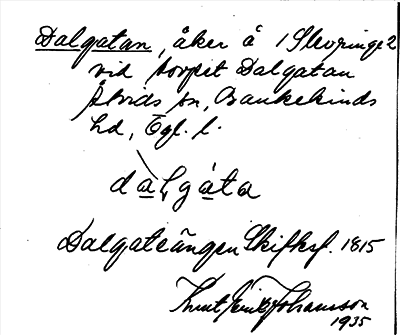 Dalgatan, åker å 1 Slevringe 2
vid torpet Dalgatan
Åtvids sn, Bankekinds
hd, Ögl. l.
dalgata
Dalgateängen Skifksf. 1815
Knut Johansson
1935